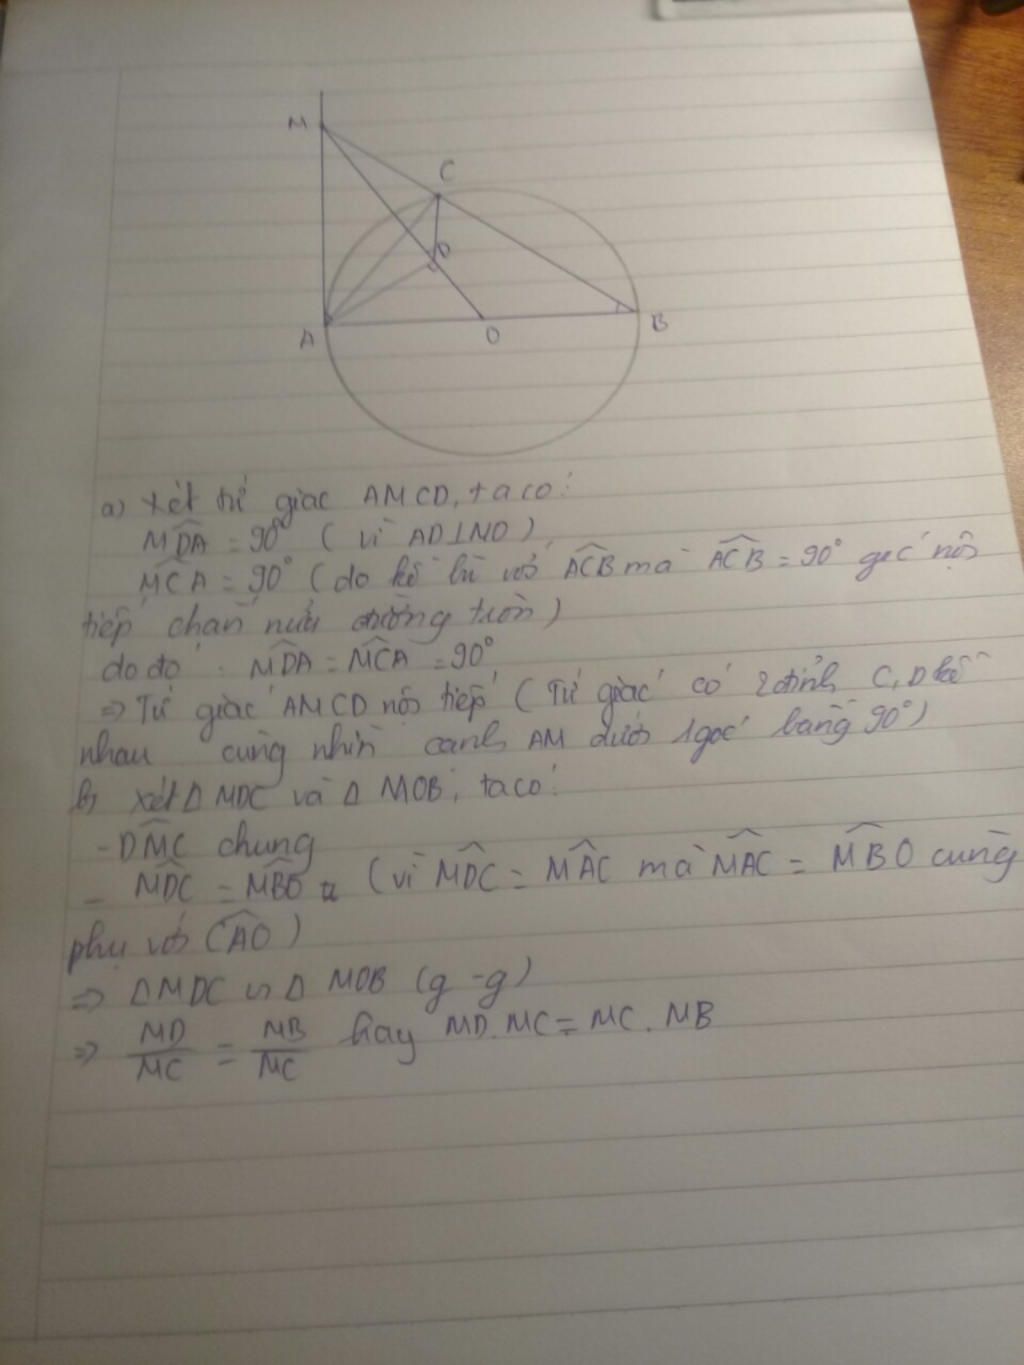 M
C
D
A
O
B
a) Xét tứ giác AMCD, ta có:
MDA = 90° (vì AD⊥MO).
MCA = 90° (do kề bù với ACB mà ACB = 90° góc nội
tiếp chắn nửa đường tròn)
do đó: MDA = MCA = 90°
=> Tứ giác AMCD nội tiếp (Tứ giác có 2 đỉnh C, D kề
nhau cùng nhìn cạnh AM dưới 1 góc bằng 90°)
b) xét Δ MDC và Δ MOB, ta có:
- DMC chung
- MDC = MBO (vì MDC = MAC mà MAC = MBO cùng
phụ với CAO)
=> Δ MDC ∽ Δ MOB (g-g)
=> MD/MC = MB/MC hay MD.MC = MC.MB